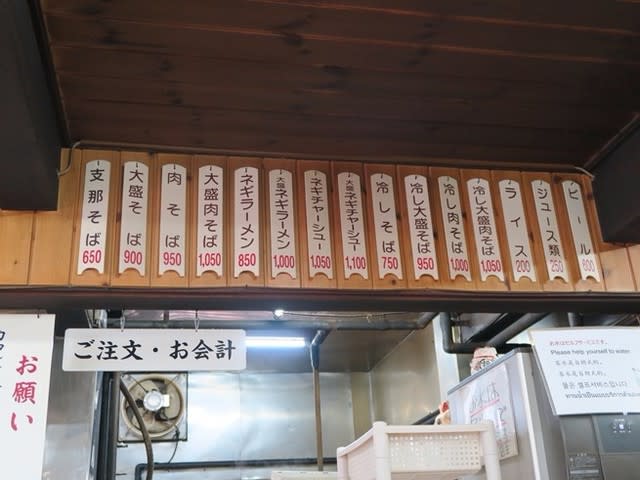 支那そば 650
大盛そば 900
肉そば 950
大盛肉そば 1,050
ネギラーメン 850
大盛ネギラーメン 1,000
ネギチャーシュー 1,050
大盛ネギチャーシュー 1,100
冷しそば 750
冷し大盛そば 950
冷し肉そば 1,000
冷し大盛肉そば 1,050
ライス 200
ジュース類 250
ビール 600
ご注文・お会計
お願い
お水はセルフサービスです。
Please help yourself to water.
물은 셀프서비스입니다